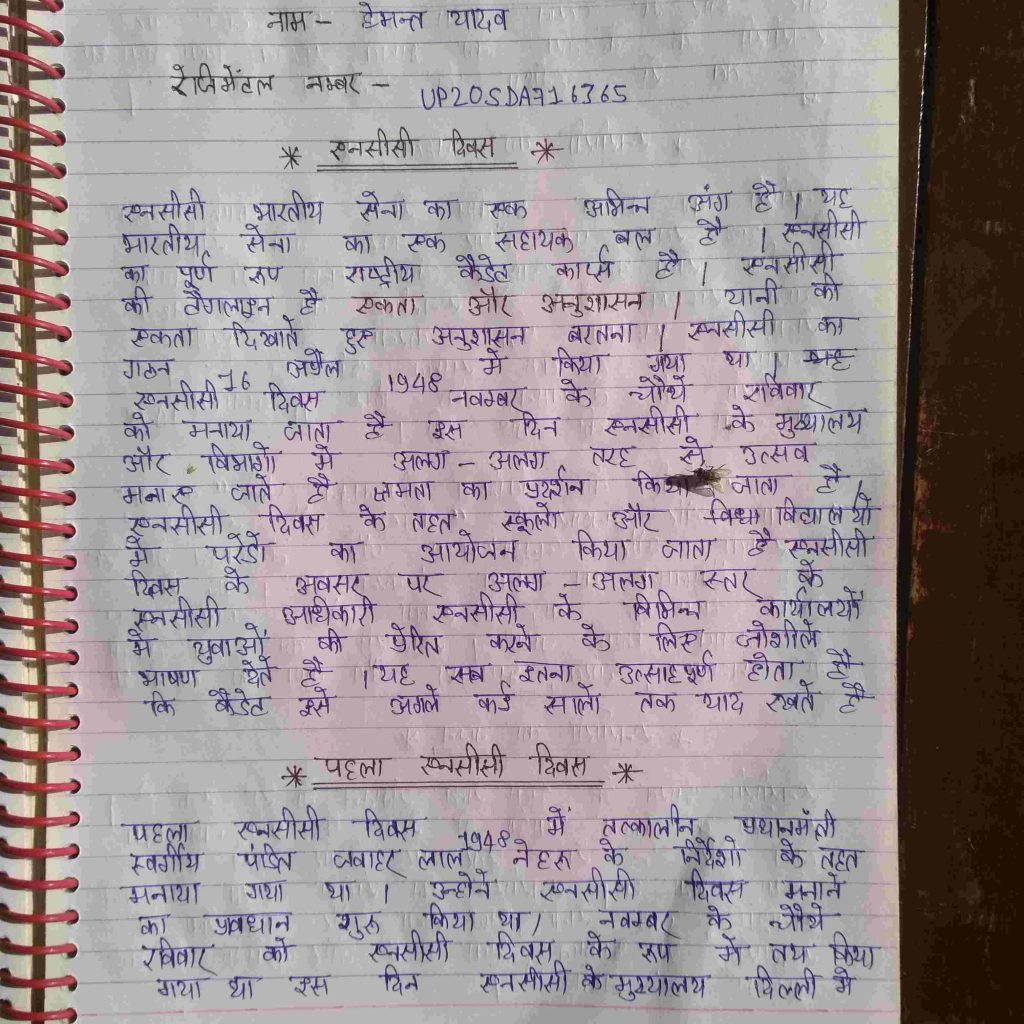 नाम - हेमन्त यादव
रेजिमेंटल नम्बर - UP20SDA716365
* एनसीसी दिवस *
एनसीसी भारतीय सेना का एक अभिन्न अंग है। यह
भारतीय सेना का एक सहायक बल है। एनसीसी
का पूर्ण रूप राष्ट्रीय कैडेट कार्प्स है। एनसीसी
की टैगलाइन है एकता और अनुशासन। यानी की
एकता दिखाते हुए अनुशासन बरतना। एनसीसी का
गठन 16 अप्रैल 1948 में किया गया था।
एनसीसी दिवस नवम्बर के चौथे रविवार
को मनाया जाता है इस दिन एनसीसी के मुख्यालय
और विभागो में अलग - अलग तरह से उत्सव
मनाए जाते है क्षमता का प्रदर्शन किया जाता है।
एनसीसी दिवस के तहत स्कूलो और विद्यालयों
मे परेडो का आयोजन किया जाता है एनसीसी
दिवस के अवसर पर अलग - अलग स्तर के
एनसीसी अधिकारी एनसीसी के विभिन्न कार्यालयों
मे युवाओं को प्रेरित करने के लिए जोशीले
भाषण देते है। यह सब इतना उत्साहपूर्ण होता है
कि कैडेट इसे अगले कई सालो तक याद रखते है
* पहला एनसीसी दिवस *
पहला एनसीसी दिवस 1948 में तत्कालीन प्रधानमंत्री
स्वर्गीय पंडित जवाहर लाल नेहरू के निर्देशो के तहत
मनाया गया था। उन्होने एनसीसी दिवस मनाने
का प्रवधान शुरू किया था। नवम्बर के चौथे
रविवार को एनसीसी दिवस के रूप में तय किया
गया था इस दिन एनसीसी के मुख्यालय दिल्ली मे